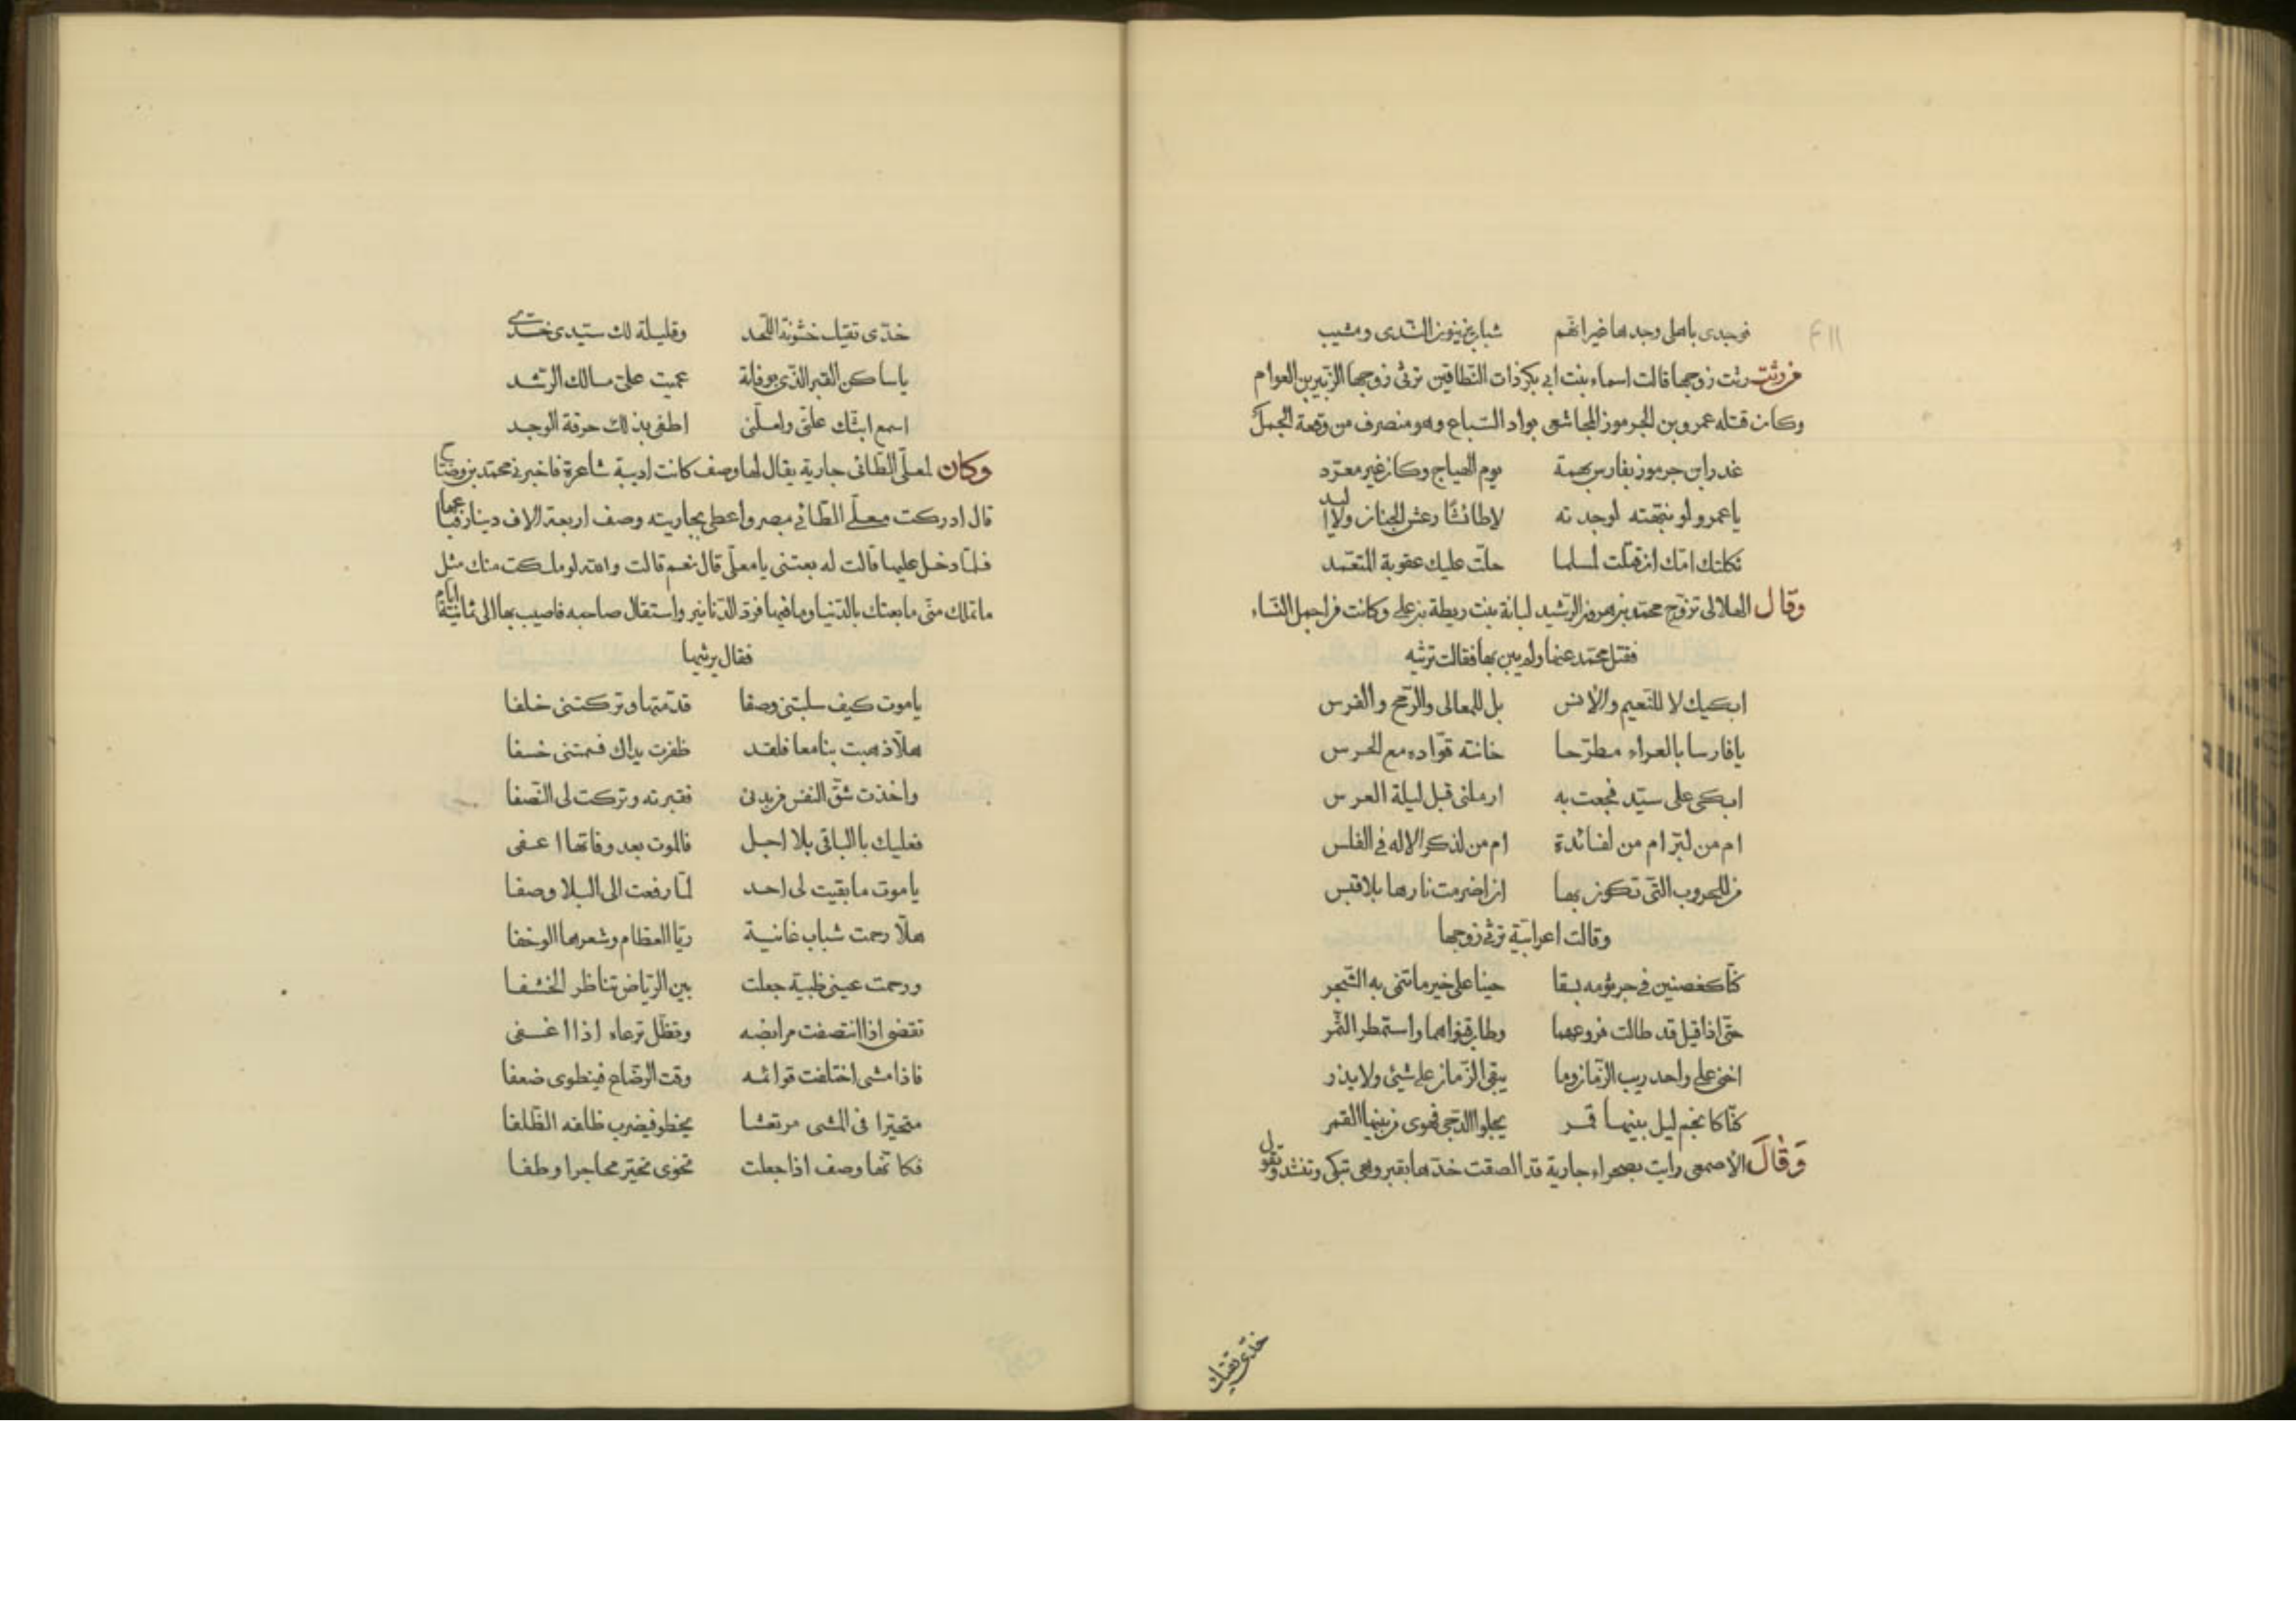 فوجدى باهلى وجدها غير انهم شباب يزينون الندى ومشيب
من رثت رثت زوجها قالت اسماء بنت ابى بكر ذات النطاقين ترثى زوجها الزبير بن العوام
وكان قتله عمرو بن الجرموز المجاشعى بواد السباع وهو منصرف من وقعة الجمل
غدر ابن جرموز بفارس بهمة يوم الهياج وكان غير معرّد
يا عمرو لو نبّهته لوجدته لا طائشا رعش الجنان ولا اليد
ثكلتك امّك ان قتلت لمسلما حلّت عليك عقوبة المتعمّد
وقال الهلالى تزوّج محمّد بن هرون الرّشيد لبانة بنت ريطة بن على وكانت من اجمل النّساء
فقتل محمّد عنها ولم يبن بها فقالت ترثيه
ابكيك لا للنّعيم والأنس بل للمعالى والرّمح والفرس
يا فارسا بالعراء مطرّحا خانته قوّاده مع الحرس
ابكى على سيّد فجعت به ارملنى قبل ليلة العرس
ام من لبرّ ام من لفائدة ام من لذكر الاله فى الغلس
من للحروب التى تكون بها ان اضرمت نارها بلا قبس
وقالت اعرابيّة ترثى زوجها
كنّا كغصنين فى جرثومه بسقا حينا على خير ما تنمى به الشّجر
حتّى اذا قيل قد طالت فروعهما وطاب قنواهما واستمطر الثّمر
اخنى على واحد ريب الزّمان وما يبقى الزّمان على شئ ولا يذر
كنّا كانجم ليل بينها قمر يجلوا الدّجى فهوى من بينها القمر
وَقَالَ الأصمعى رايت بصحراء جارية قد الصقت خدّها بقبر وهى تبكى وتنشد وتقول
خدّى تقيك
خدّى تقيك خشونة اللّحد وقليلة لك سيّدى خدّى
يا ساكن القبر الذّى بوفاته عميت علىّ مسالك الرّشد
اسمع ابثّك علّتى واسلّنى اطفى بذلك حرقة الوجد
وكان لمعلّى الطّائى جارية يقال لها وصف كانت اديبة شاعرة فاخبرنى محمّد بن وضّاح
قال ادركت معلّى الطّائى بمصر واعطى بجاريته وصف اربعة الاف دينار فباعها
فلمّا دخل عليها قالت له بعتنى يا معلّى قال نعم قالت والله لو ملكت منك مثل
ما تملك منّى ما بعتك بالدّنيا وما فيها فردّ الدّنانير واستقال صاحبه فاصيب بها الى ثمانية ايّام
فقال يرثيها
يا موت كيف سلبتنى وصفا قدّمتها وتركتنى خلفا
هلّا ذهبت بنا معا فلقد ظفرت يداك فسمتنى خسفا
واخذت شقّ النفس من بدنى فقبرته وتركت لى النّصفا
فعليك بالباقى بلا اجل فالموت بعد وفاتها اعفى
يا موت ما بقيت لى احد لمّا رفعت الى البلا وصفا
هلّا رحمت شباب غانية ريّا العظام وشعرها الوحفا
ورحمت عينى ظبية جعلت بين الرّياض تناظر الخشفا
تقضى اذا انتصفت مرابضه وتظّل ترعاه اذا اغفى
فاذا مشى اختلفت قوائمه وقت الرضاع فينطوى ضعفا
متحيّرا فى المشى مرتعشا يخطو فيضرب ظلفه الظّلفا
فكانّها وصف اذا جعلت نحوى تحيّر محاجرا وطفا